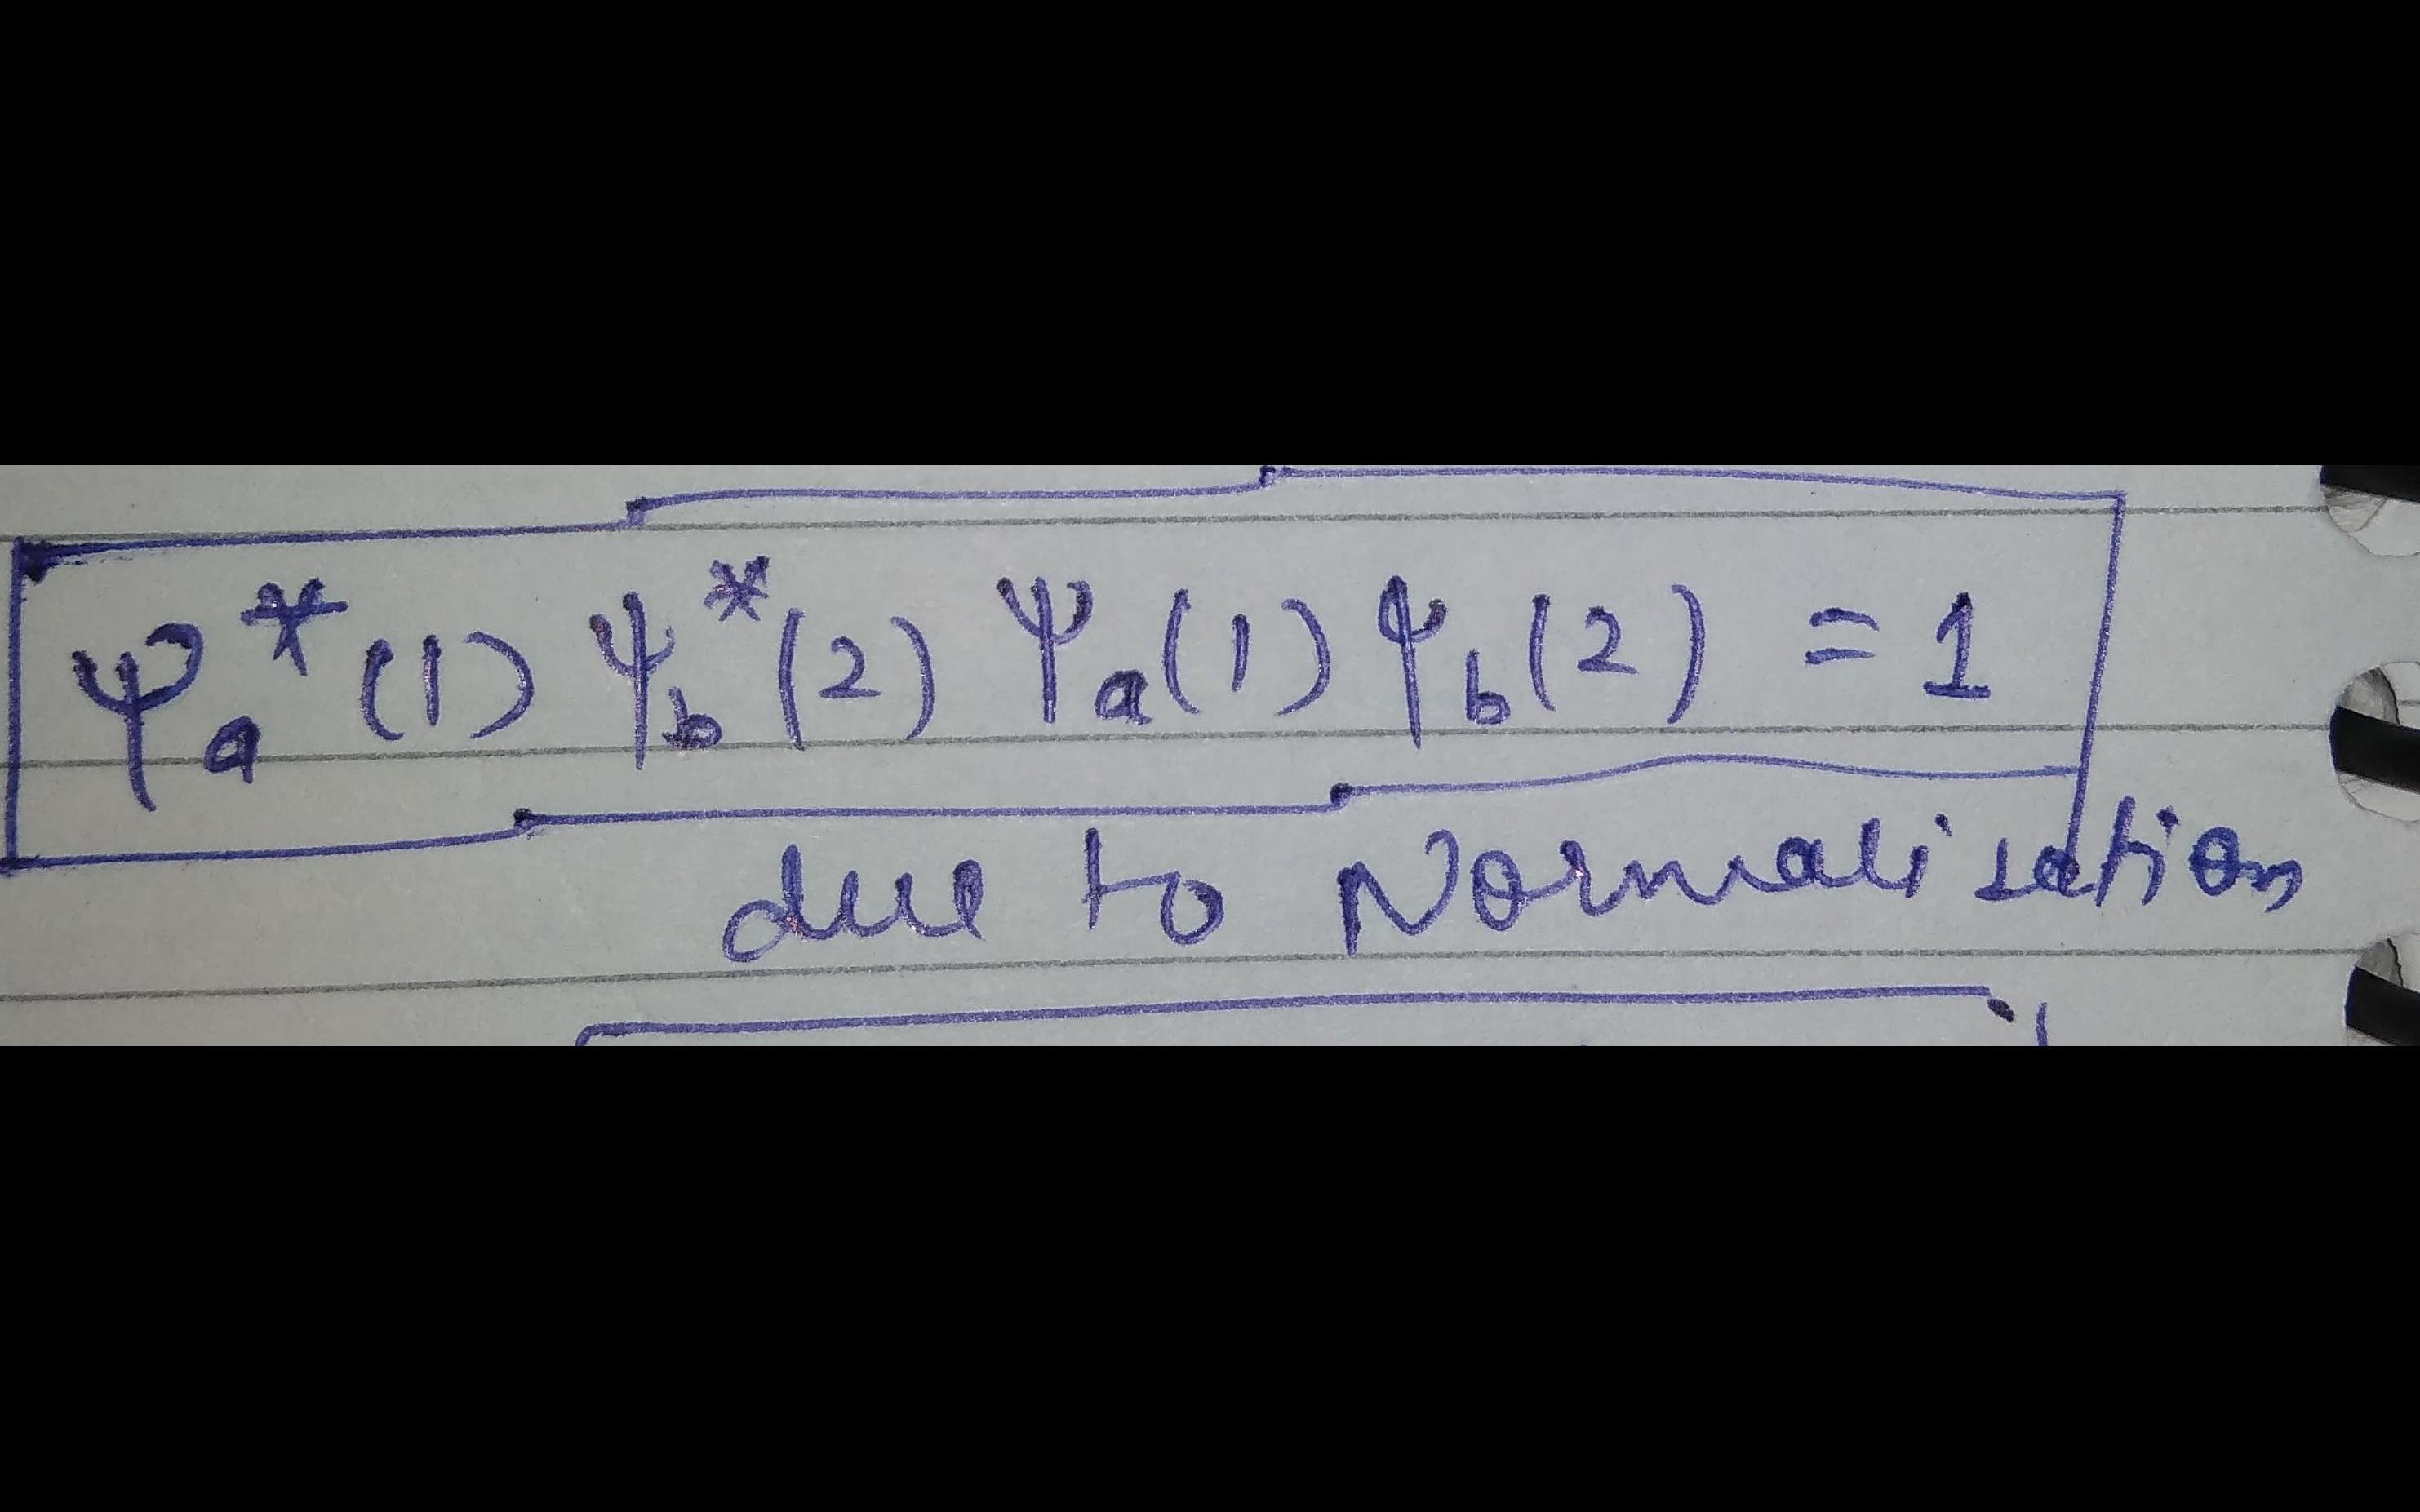 ψₐ*(1) ψ_b*(2) ψₐ(1) ψ_b(2) = 1
due to Normalisation